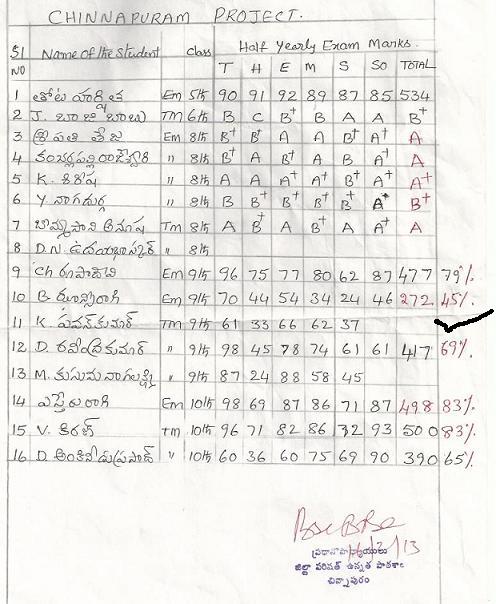 CHINNAPURAM PROJECT.
Half Yearly Exam Marks.
Sl NO Name of the Student class T H E M S So TOTAL
1 తోట హర్షిత Em 5th 90 91 92 89 87 85 534
2 J. బాజి బాబు TM 6th B C B+ B A A B+
3 శ్రీపతి తేజ Em 8th B+ B+ A A B+ A+ A
4 " 8th B+ A B+ A B A+ A
5 K. శిరీష " 8th A A A A+ B+ A+ A+
6 Y నాగదుర్గ " 8th B B+ B+ B+ B+ A+ B+
7 Tm 8th A B+ A B+ A A+ A
8 D.N. ఉదయభాస్కర్ " 8th
9 Ch రూపాదేవి Em 9th 96 75 77 80 62 87 477 79%
10 B. ఝాన్సీరాణి Em 9th 70 44 54 34 24 46 272 45%
11 K. పవన్ కుమార్ TM 9th 61 33 66 62 37
12 D. రవీంద్రకుమార్ " 9th 98 45 78 74 61 61 417 69%
13 M. కుసుమ నాగలక్ష్మి " 9th 87 24 88 58 45
14 ఎస్తేరు రాణి Em 10th 98 69 87 86 71 87 498 83%
15 V. కిరణ్ TM 10th 96 71 82 86 72 93 500 83%
16 D. అంకినీడు ప్రసాద్ " 10th 60 36 60 75 69 90 390 65%
ప్రధానోపాధ్యాయులు
జిల్లా పరిషత్ ఉన్నత పాఠశాల
చిన్నాపురం